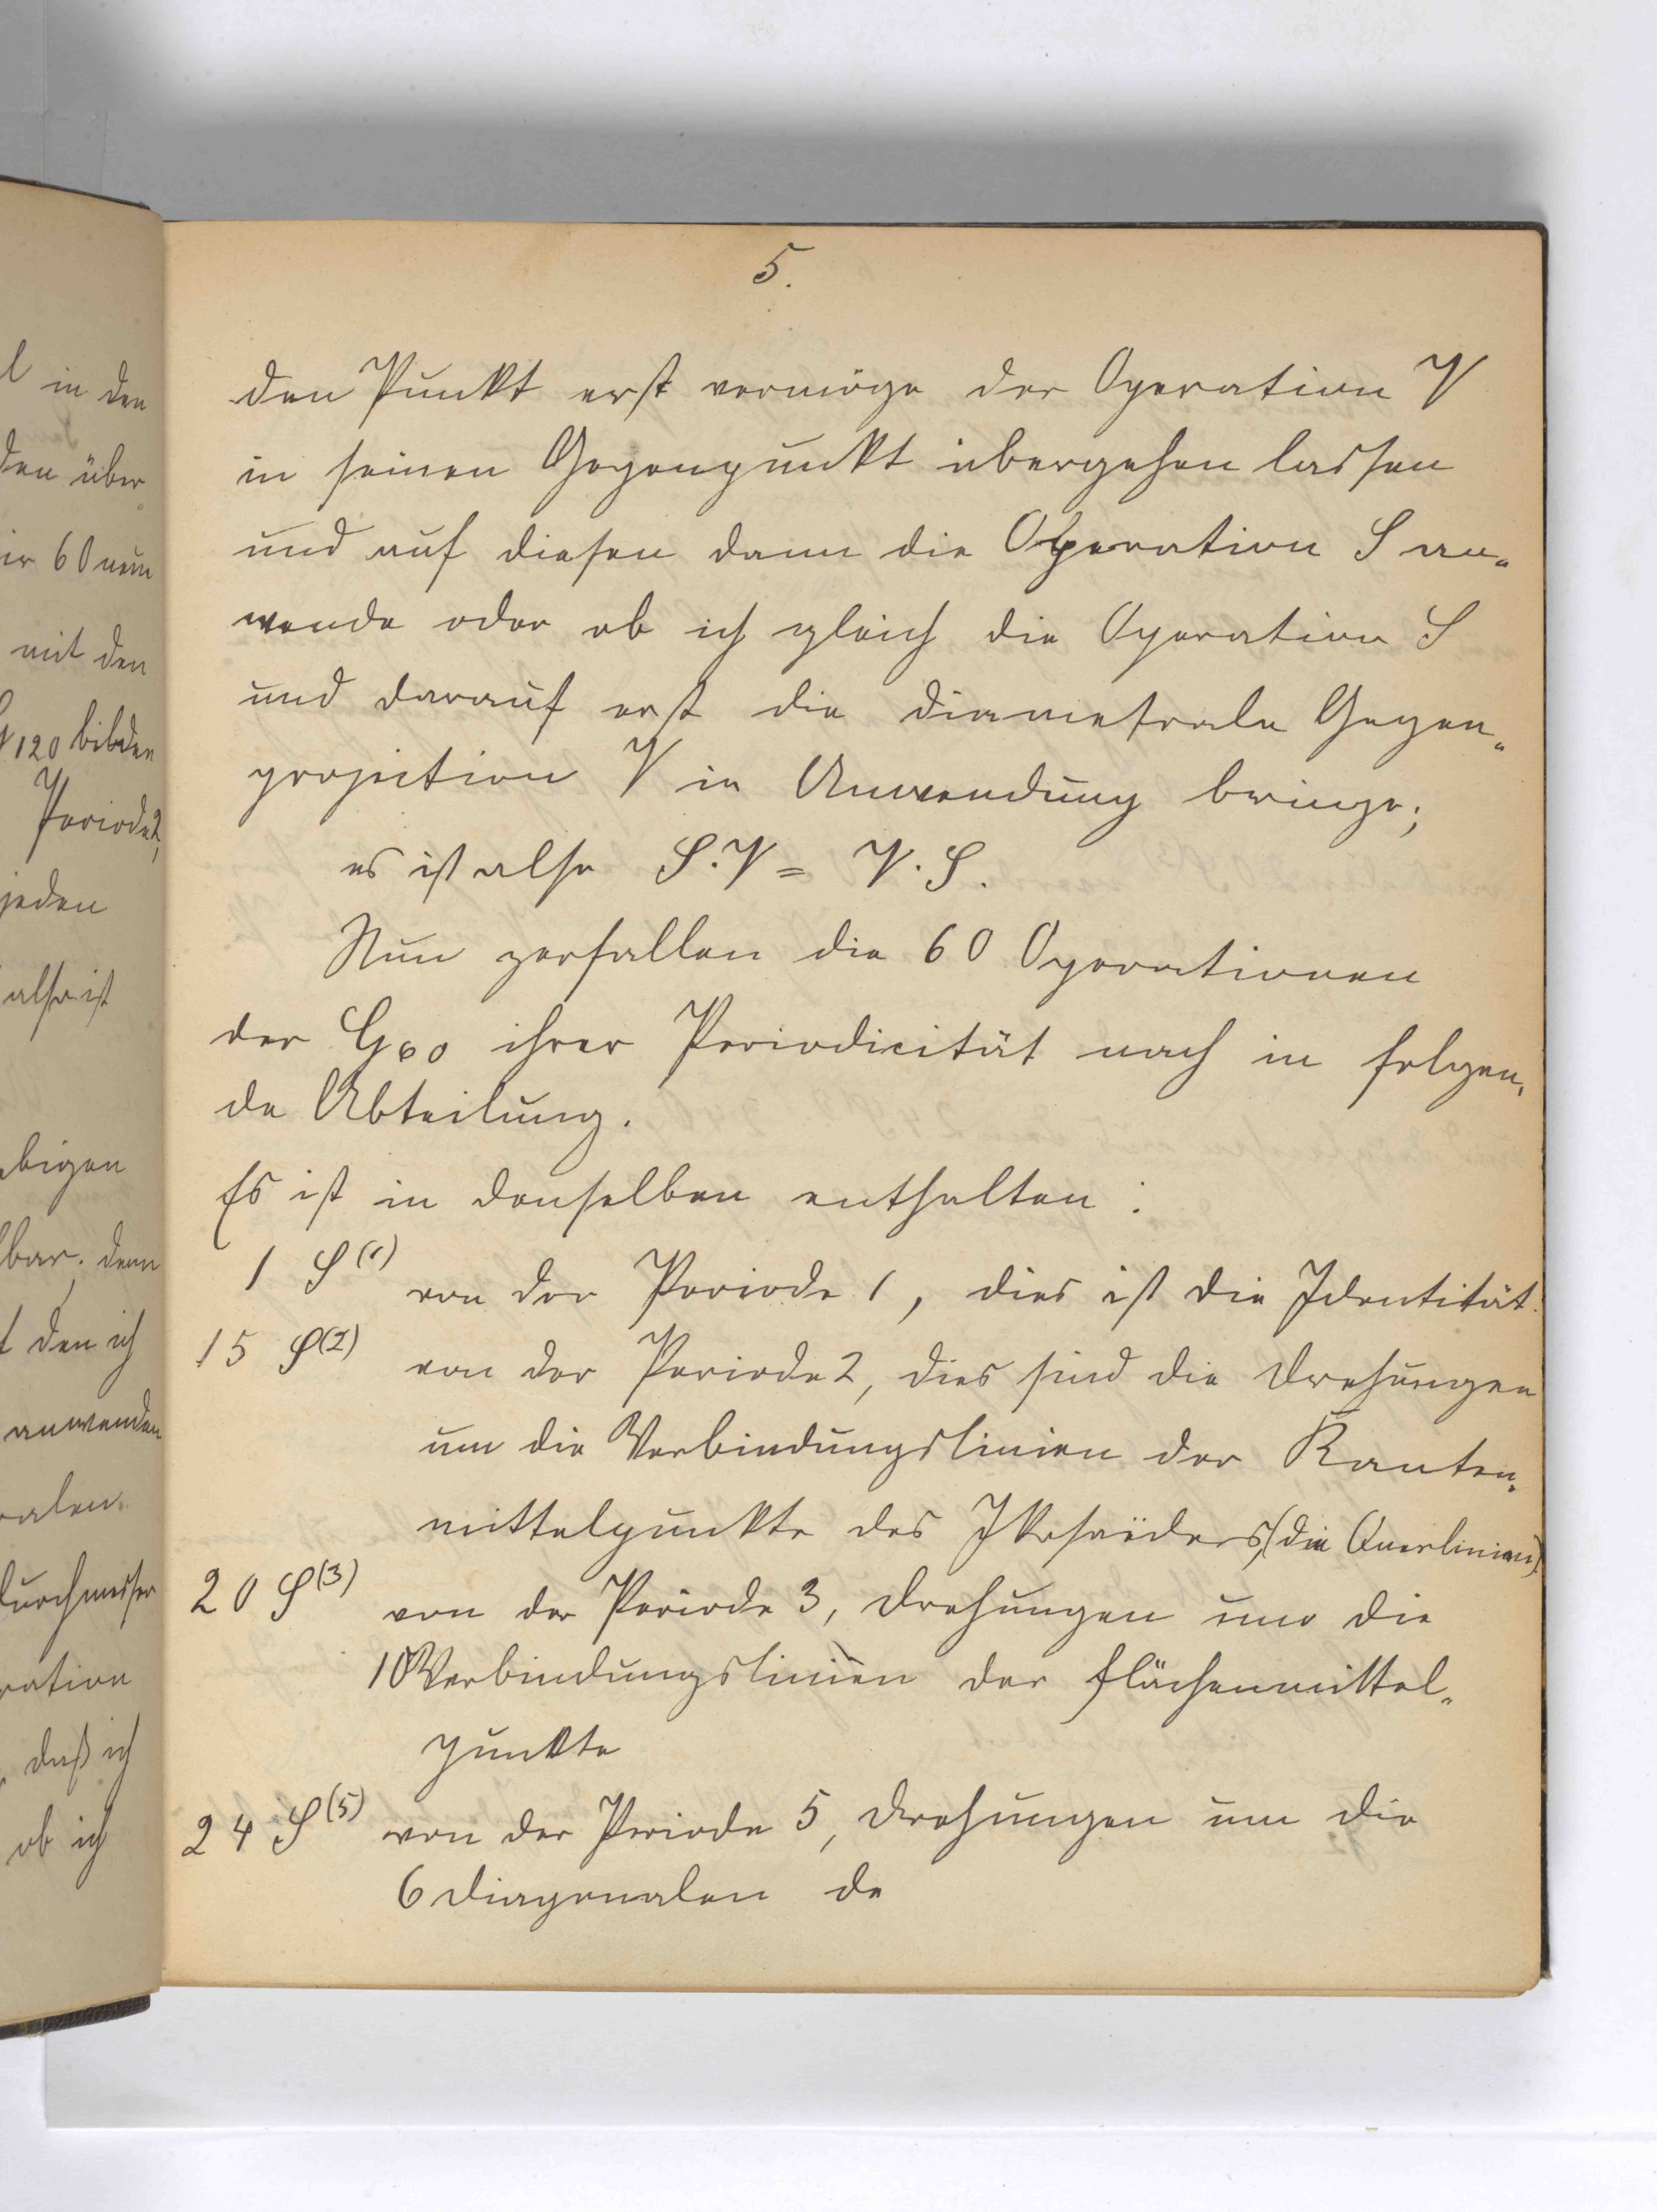 5.
den Punkt erst vermöge der Operation V
in seinen Gegenpunkt übergehen lassen
und auf diesen dann die Operation S an-
wende oder ob ich gleich die Operation S
und darauf erst die diametrale Gegen-
projection V in Anwendung bringe;
es ist also S.V = V.S.
Nun zerfallen die 60 Operationen
der G60 ihrer Periodicität nach in folgen-
de Abteilung.
Es ist in denselben enthalten:
1 S(1) von der Periode 1, dies ist die Identität.
15 S(2) von der Periode 2, dies sind die Drehungen
um die Verbindungslinien der Kanten-
mittelpunkte des Ikosaëders, (die Querlinien).
20 S(3) von der Periode 3, Drehungen um die
10 Verbindungslinien der Flächenmittel-
punkte
24 S(5) von der Periode 5, Drehungen um die
6 Diagonalen de
l in den
den über-
ir 60 neue
mit den
G120 bilden
Periode 2,
jeden
also ist
bigen
bar, denn
t den ich
anwenden
ralen
Durchmesser
ration
, daß ich
ob ich